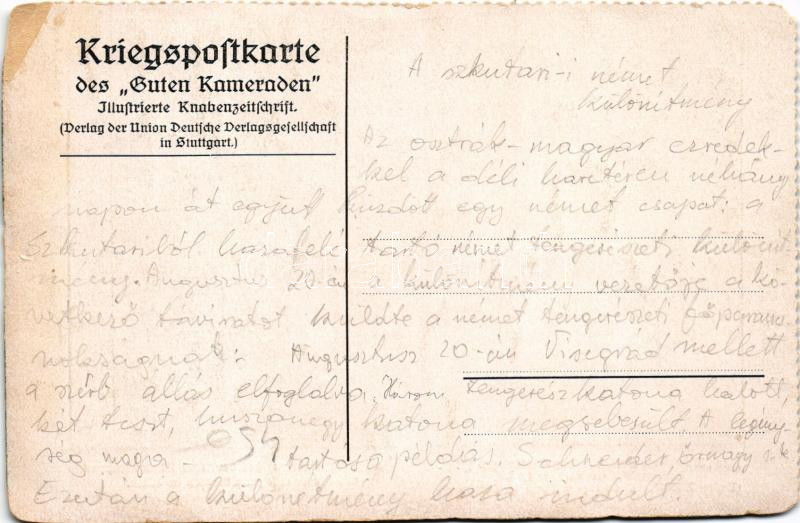 Kriegspoſtkarte
des „Guten Kameraden”
Illuſtrierte Knabenzeitſchrift.
(Verlag der Union Deutſche Verlagsgeſellſchaft
in Stuttgart.)
A szkutari-i német
különítmény
Az osztrák-magyar ezredek-
kel a déli harctéren néhány
napon át együtt küzdott egy német csapat: a
Szkutariból hazafelé tartó német tengerészeti különít
mény. Augusztus 20-án a különítmény vezetője a kö-
vetkező táviratot küldte a német tengerészeti főparancs
nokságnak: Augusztus 20-án Visegrád mellett
a szerb állás elfoglalva. Három tengerészkatona halott,
két tiszt, huszonegy katona megsebesült. A legény-
ség maga-
tartása példás. Schneider, őrnagy
Ezután a különítmény haza indult.